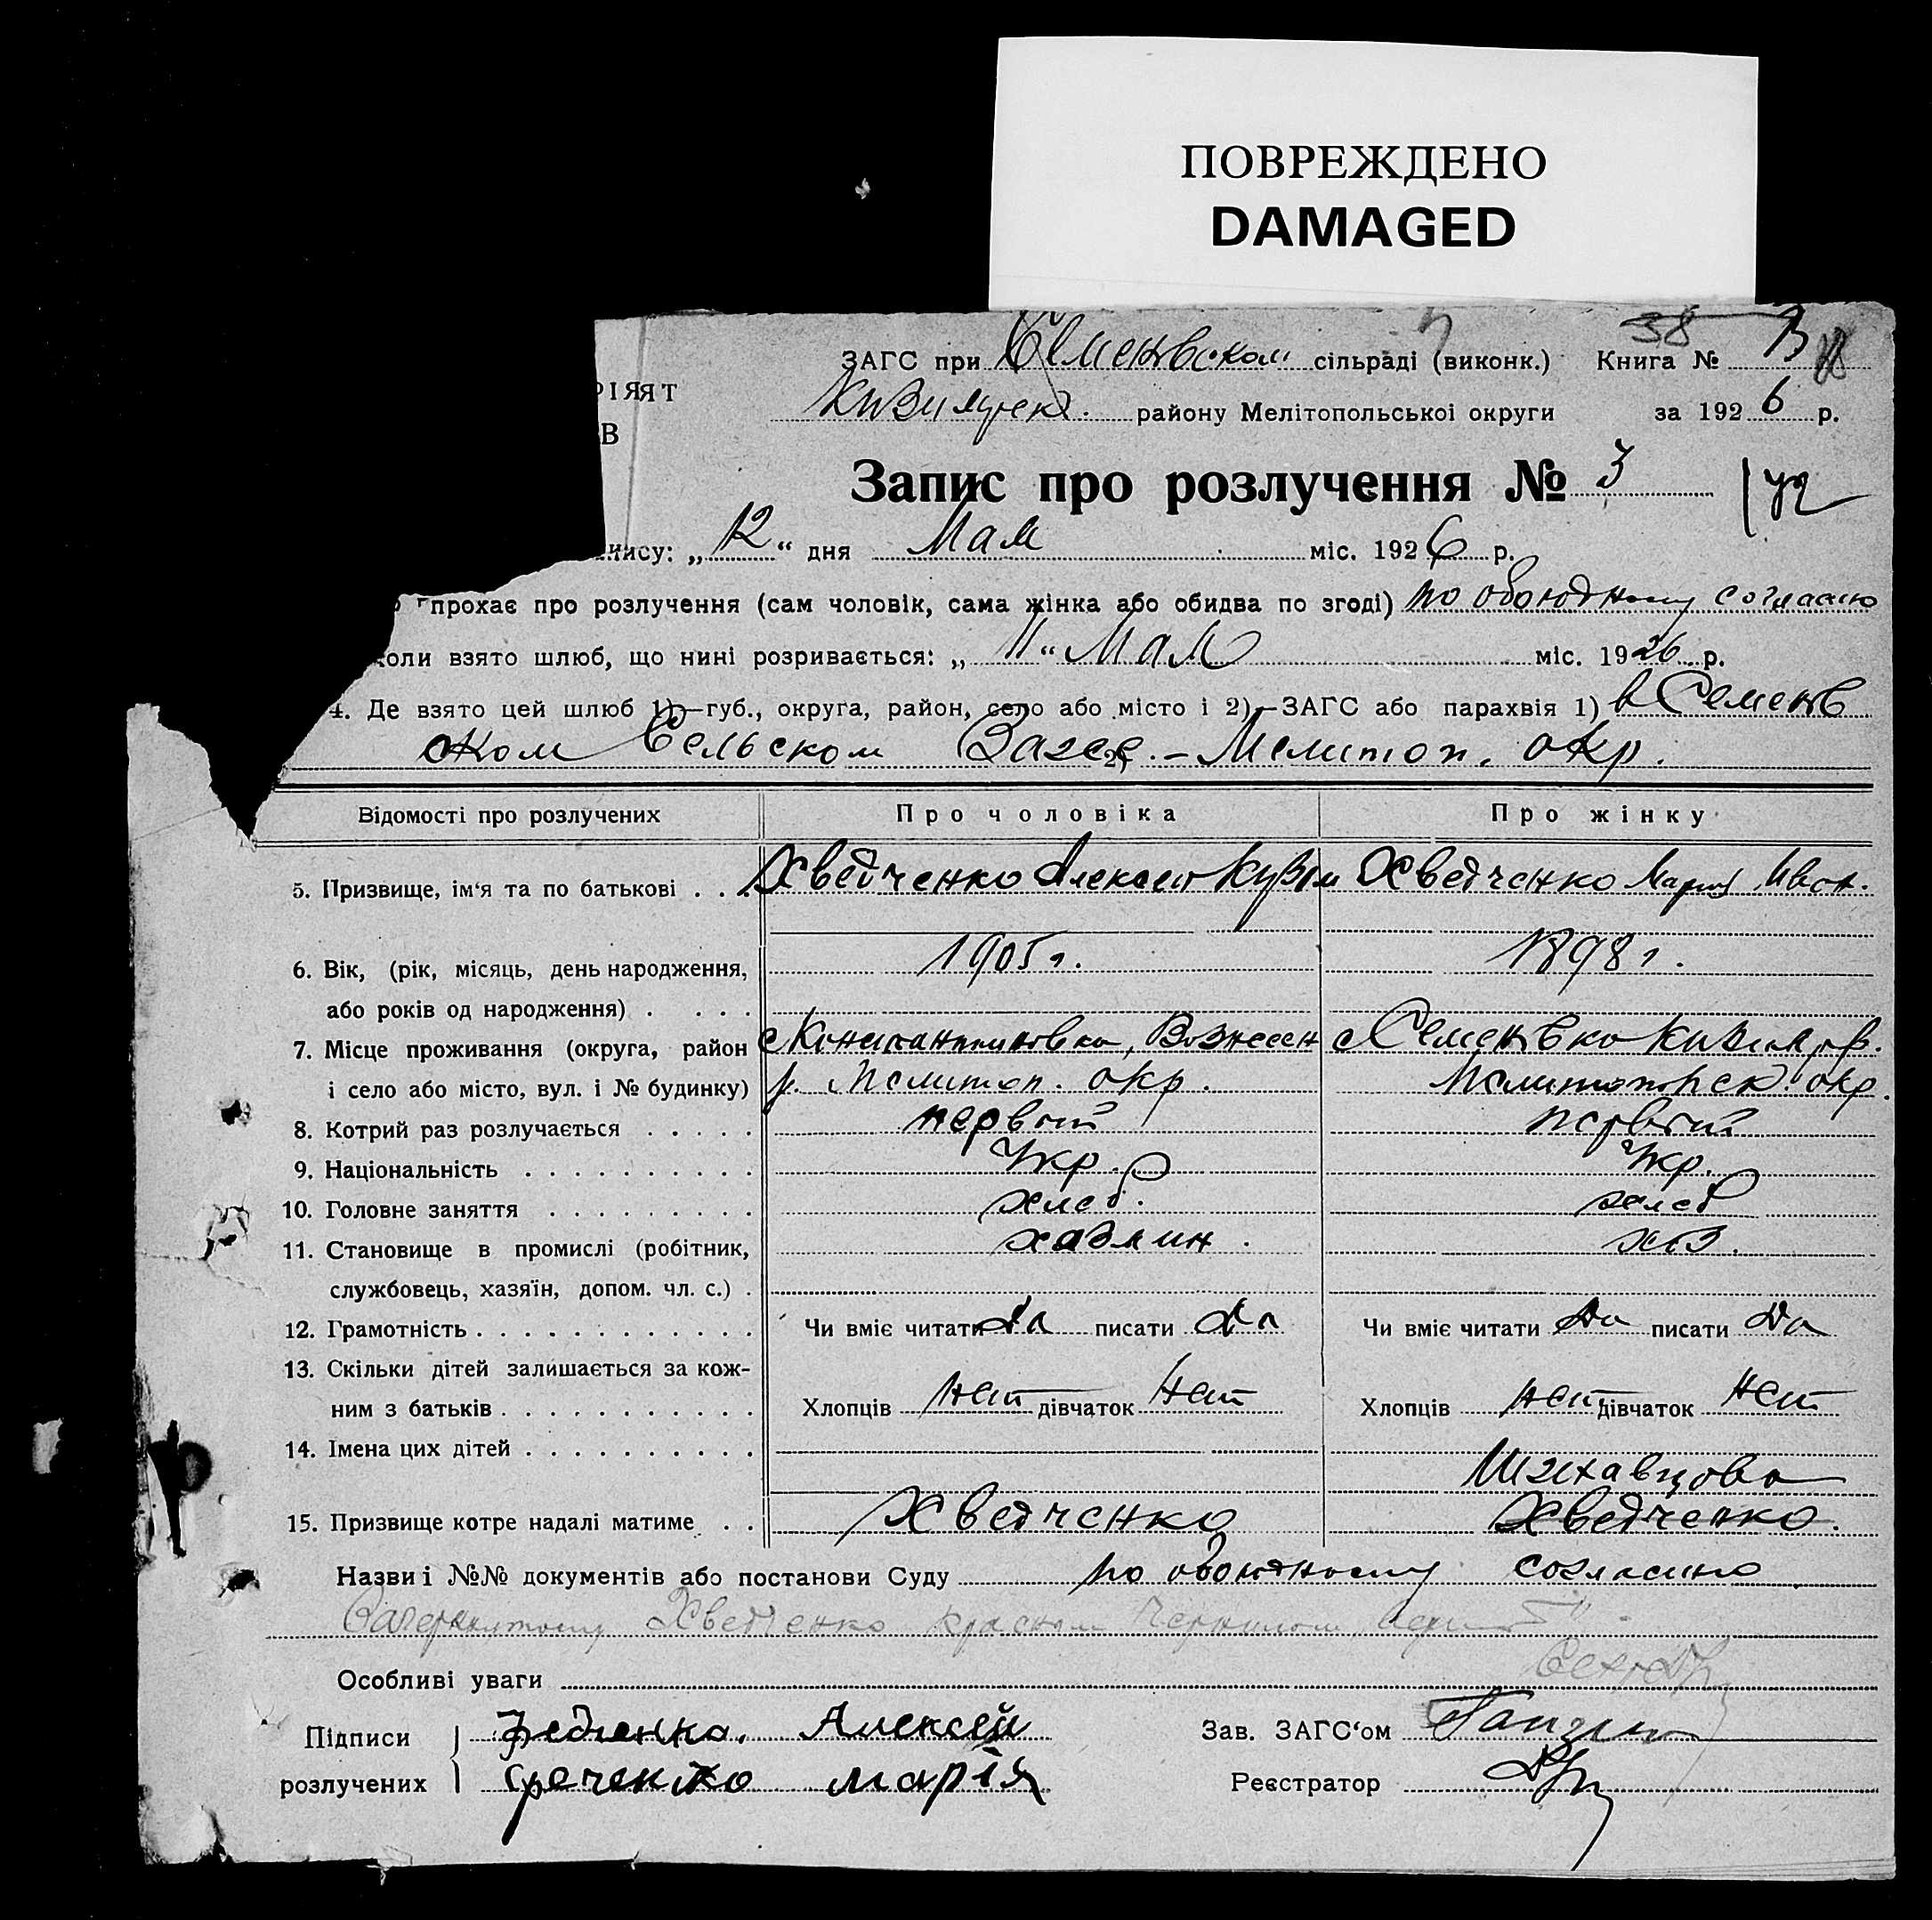 ПОВРЕЖДЕНО
DAMAGED
38
ЗАГС при Семеновском сільраді (виконк.) Книга №
району Мелітопольської округи за 1926 р.
В
Запис про розлучення № 3
пису: „12“ дня Мая міс. 1926 р.
прохає про розлучення (сам чоловік, сама жінка або обидва по згоді) по обоюдному согласию
коли взято шлюб, що нині розривається: „11“ Мая міс. 1926 р.
4. Де взято цей шлюб 1)—губ., округа, район, село або місто і 2)—ЗАГС або парахвія 1) в Семенов
ском Сельском Загсе 2) - Мелитоп. окр.
Відомості про розлучених Про чоловіка Про жінку
5. Призвище, ім‘я та по батькові . . . Хведченко Алексей Кузьм Хведченко Мария Иван.
6. Вік, (рік, місяць, день народження, 1905 г. 1898 г.
або років од народження) . . . .
7. Місце проживання (округа, район с Константиновка, Вознесен с Семеновка
і село або місто, вул. і № будинку) р. Мелитоп. окр. Мелитопольск. окр.
8. Котрий раз розлучається . . . . . первый первый
9. Національність . . . . . . . . . . Укр. Укр.
10. Головне заняття . . . . . . . . . хлеб. хлеб
11. Становище в промислі (робітник, хазяин. хоз.
службовець, хазяїн, допом. чл. с.) .
12. Грамотність . . . . . . . . . . . . Чи вміє читати да писати да Чи вміє читати да писати да
13. Скільки дітей залишається за кож-
ним з батьків . . . . . . . . . . . Хлопців нет дівчаток нет Хлопців нет дівчаток нет
14. Імена цих дітей . . . . . . . . . .
15. Призвище котре надалі матиме . . Хведченко Хведченко.
Назви і №№ документів або постанови Суду по обоюдному согласию
Зачеркнутому Хведченко красным чернилом
Особливі уваги
Підписи Федченко. Алексей Зав. ЗАГС‘ом
розлучених марія Реєстратор